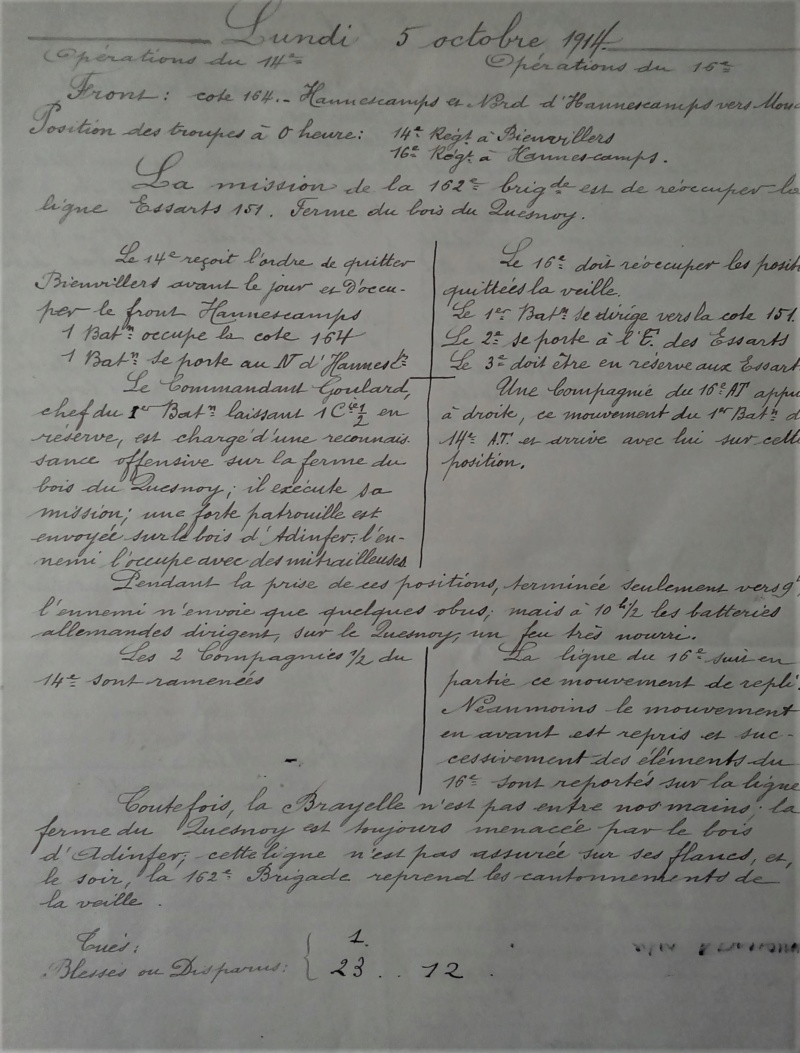 Lundi 5 octobre 1914
Opérations du 14e Opérations du 16e
Front: cote 164. - Hannescamps et Nrd d'Hannescamps vers
Position des troupes à 0 heure: 14e Régt à Bienvillers
16e Régt à Hannescamps.
La mission de la 162e brigde est de réoccuper la
ligne Essarts 151. Ferme du bois du Quesnoy.
Le 14e reçoit l'ordre de quitter
Bienvillers avant le jour et d'occu-
per le front Hannescamps
1 Batn occupe la cote 164
1 Batn se porte au N d'Hannescps
Le Commandant Goulard,
chef du 1er Batn laissant 1 Cie 1/2 en
réserve, est chargé d'une reconnais
sance offensive sur la ferme du
bois du Quesnoy; il exécute sa
mission; une forte patrouille est
envoyée sur le bois d'Adinfer: l'en-
nemi l'occupe avec des mitrailleuses
Le 16e doit réoccuper les posit
quittées la veille.
Le 1er Batn se dirige vers la cote 151.
Le 2e se porte à l'E. des Essarts
Le 3e doit être en réserve aux Essart
Une Compagnie du 16e AT appu
à droite, ce mouvement du 1er Batn d
14e A.T. et arrive avec lui sur cett
position.
Pendant la prise de ces positions, terminée seulement vers 9
l'ennemi n'envoie que quelques obus; mais à 10 h 1/2 les batteries
allemandes dirigent, sur le Quesnoy, un feu très nourri.
Les 2 Compagnies 1/2 du
14e sont ramenées
La ligne du 16e suit en
partie ce mouvement de repli.
Néanmoins le mouvement
en avant est repris et suc-
cessivement des éléments du
16e sont reportés sur la ligne
Toutefois, la Brayelle n'est pas entre nos mains; la
ferme du Quesnoy est toujours menacée par le bois
d'Adinfer; cette ligne n'est pas assurée sur ses flancs, et,
le soir, la 162e Brigade reprend les cantonnements de
la veille.
Tués: 1.
Blessés ou Disparus: 23 . . 12 .